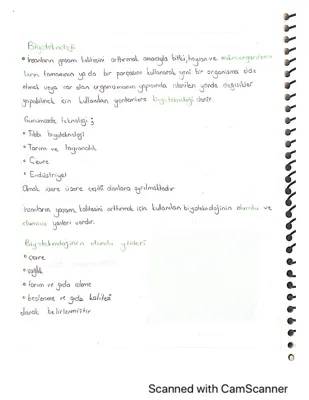 Biyoteknoloji
• İnsanların yaşam kalitesini arttırmak amacıyla bitki, hayvan ve mikroorganizma
ların tamamının ya da bir parçasını kullanarak yeni bir organizma elde
etmek veya var olan organizmanın yapısında istenilen yönde değişikler
yapabilmek için kullanılan yöntemlere biyoteknoloji denir.
Günümüzde teknoloji ;
• Tıbbi biyoteknoloji
• Tarım ve hayvancılık
• Çevre
• Endüstriyel
Olmak üzere üzere çeşitli alanlara ayrılmaktadır
İnsanların yaşam kalitesini arttırmak için kullanılan biyoteknolojinin olumlu ve
olumsuz yönleri vardır.
Biyoteknolojinin olumlu yönleri
• çevre
• sağlık
• tarım ve gıda
• beslenme ve gıda kalitesi
olarak belirlenmiştir
Scanned with CamScanner